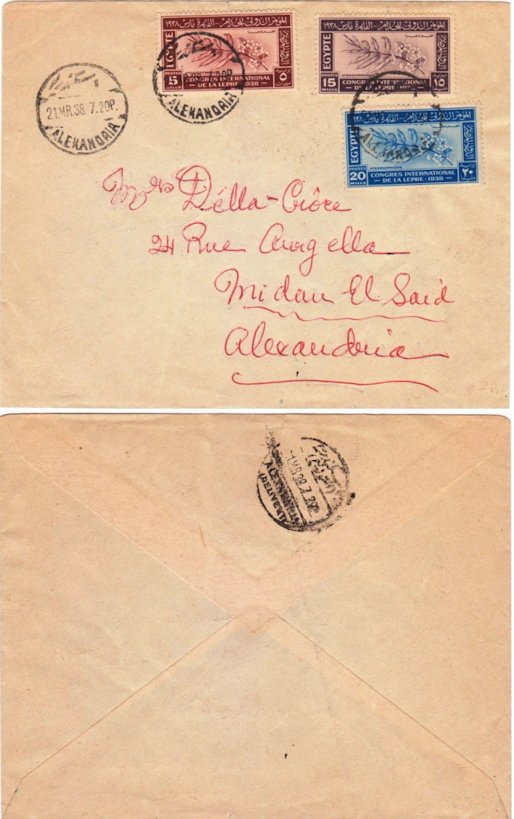 المؤتمر الدولى للجذام - القاهرة مارس ١٩٣٨
EGYPTE
5
MILLS
٥
CONGRES INTERNATIONAL
DE LA LEPRE · 1938
المؤتمر الدولى للجذام - القاهرة مارس ١٩٣٨
EGYPTE
15
MILLS
١٥
CONGRES INTERNATIONAL
DE LA LEPRE · 1938
المؤتمر الدولى للجذام - القاهرة مارس ١٩٣٨
EGYPTE
20
MILLS
٢٠
CONGRES INTERNATIONAL
DE LA LEPRE · 1938
21.MR.38.7.20P.
ALEXANDRIA
ALEXANDRIA
Mrs Délla-Ciôre
24 Rue
Midan El Said
Alexandria
MR.38.7.20P.
ALEXANDRIA
(DELIVERY)